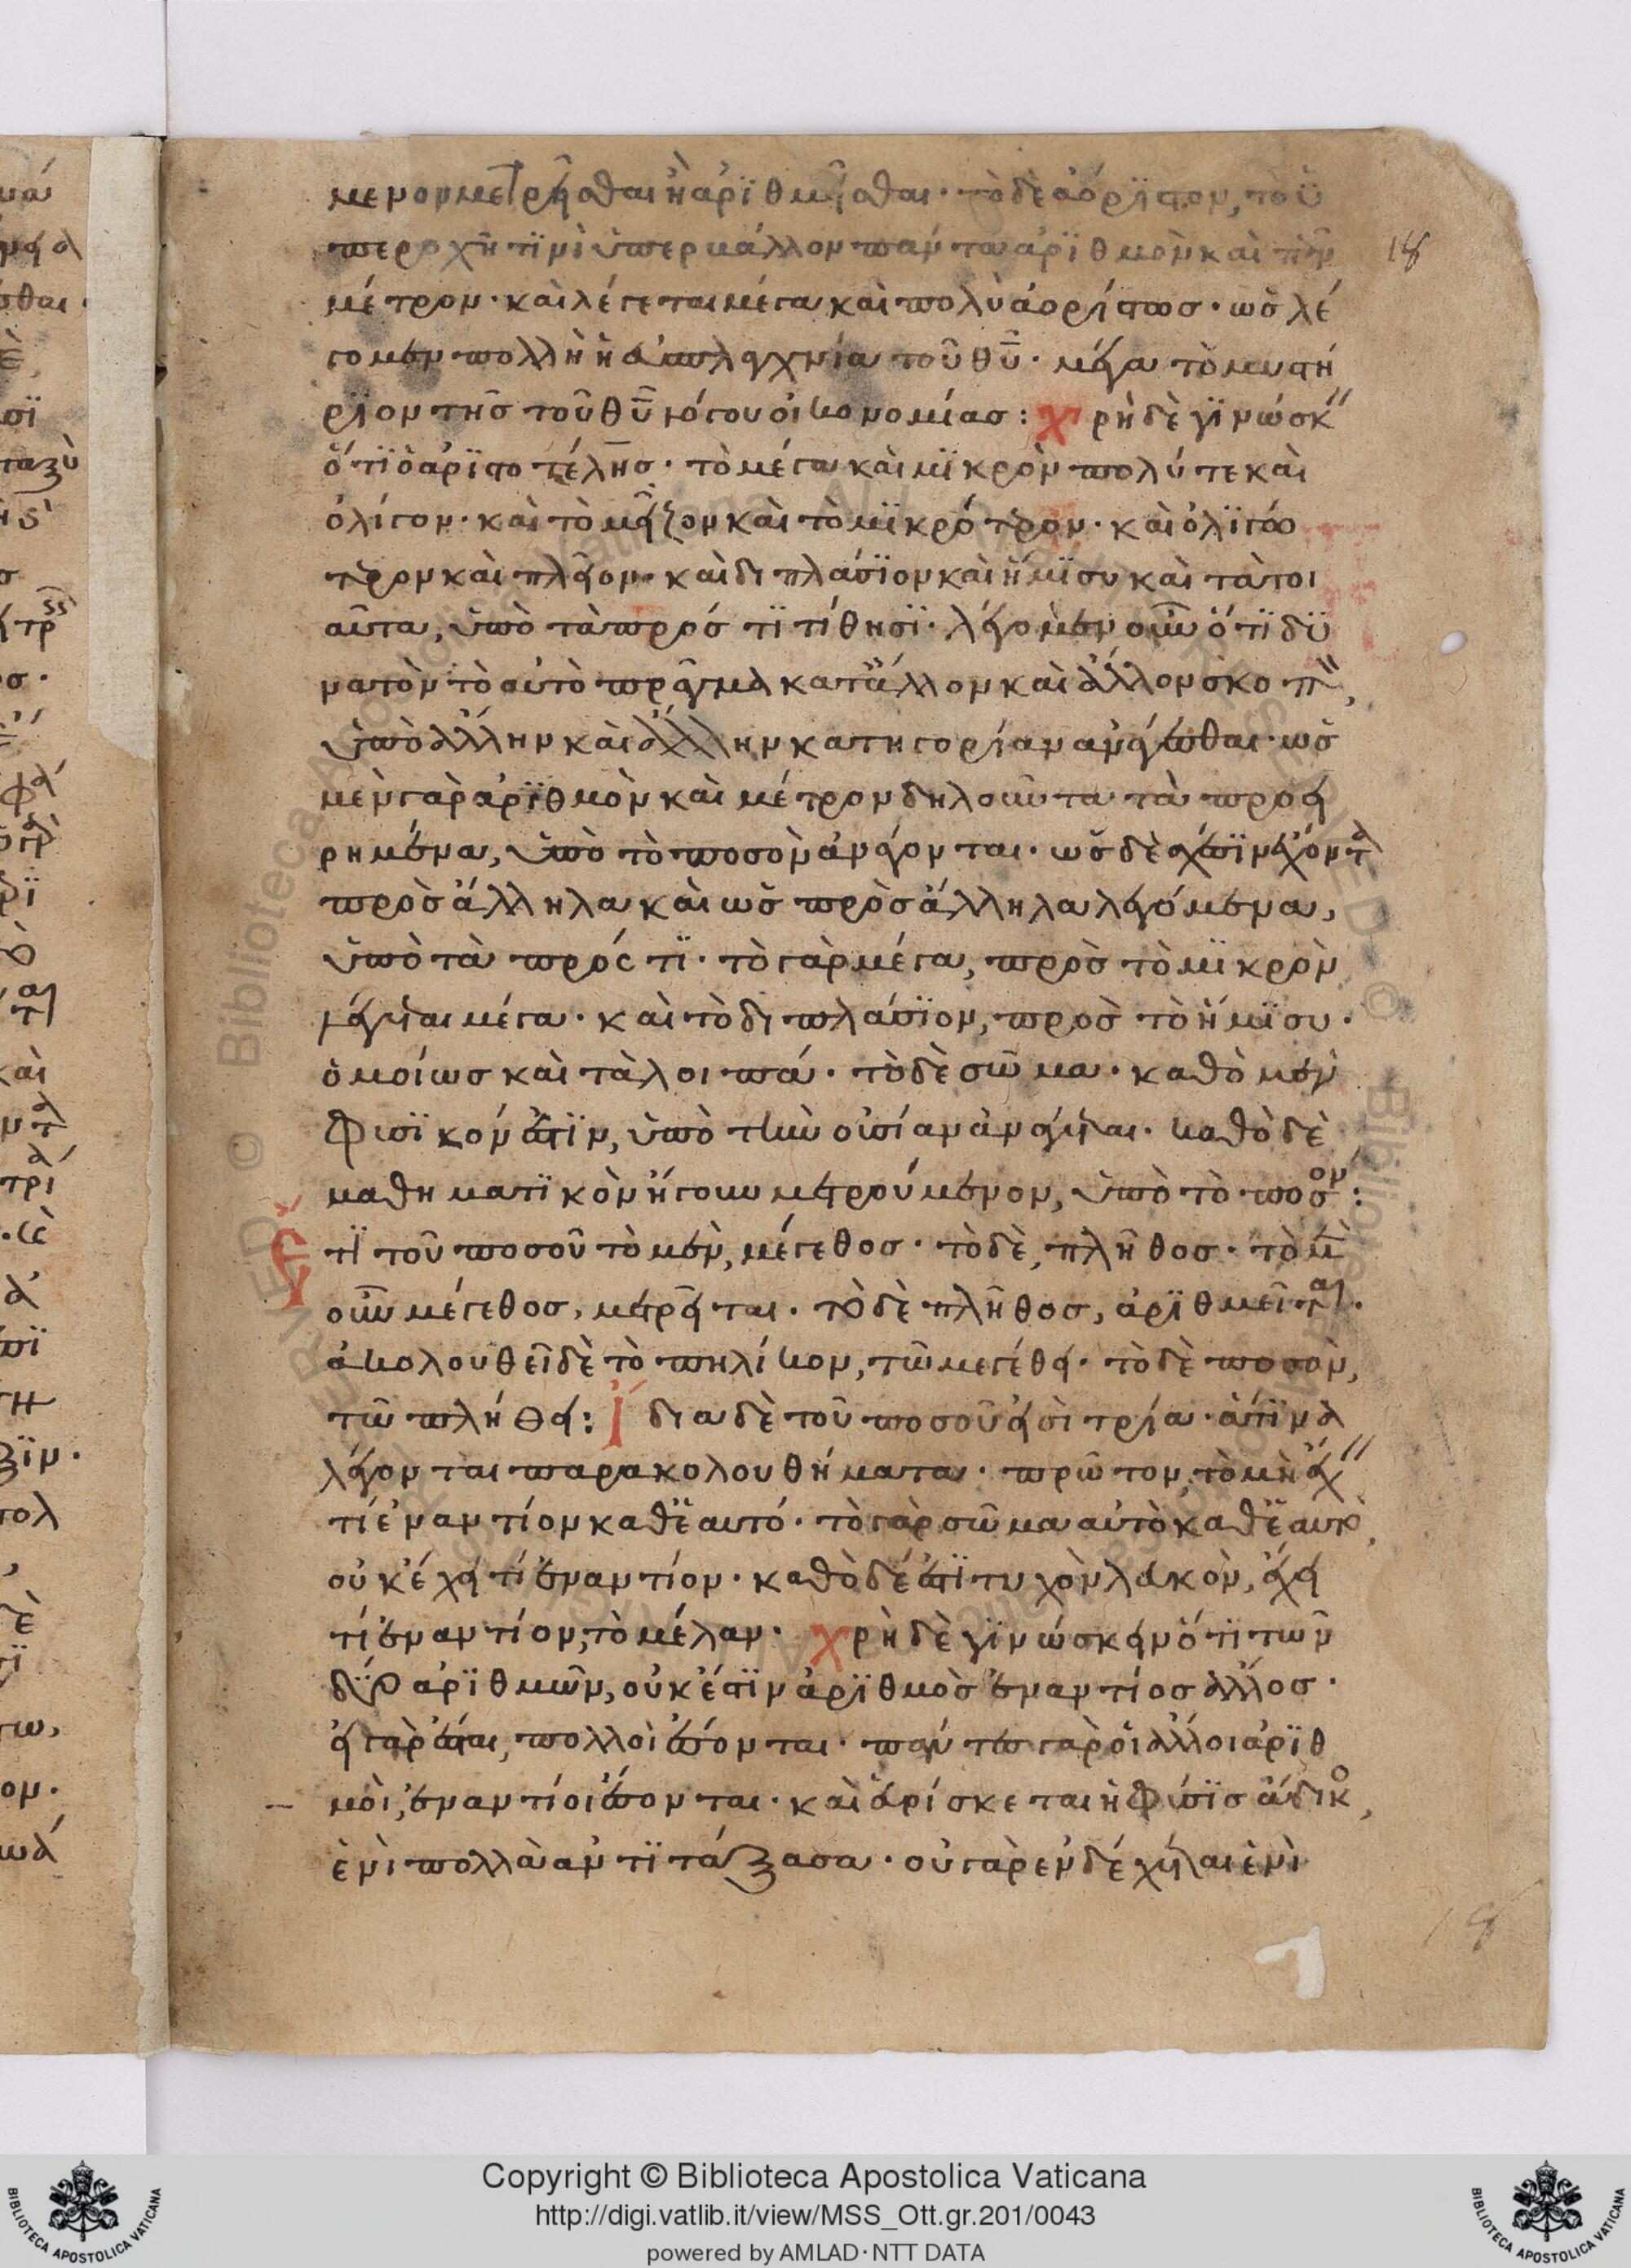 μενον μετρεῖσθαι ἢ ἀρϊθμεῖσθαι · τὸ δὲ ἀόρϊστον, τὸ ὑ
περοχῆ τϊνὶ ὑπερ μάλλον πάντα ἀρϊθμὸν καὶ πᾶν
18
μέτρον · καὶ λέγεται μέγα καὶ πολὺ ἀορίστωσ · ὡσ λέ
γομεν πολλὴ ἡ εὐσπλαγχνία τοῦ θῦ · μέγα τὸ μυστή
ρϊον τῆσ τοῦ θῦ λόγου οἰκονομίασ : χρὴ δὲ γϊνώσκειν
ὅτϊ ὁ ἀρϊστοτέλησ · τὸ μέγα καὶ μϊκρὸν πολύ τε καὶ
ὀλίγον · καὶ τὸ μεῖζον καὶ τὸ μϊκρότερον · καὶ ὀλϊγώ
τερον καὶ πλεῖον · καὶ διπλάσϊον καὶ ἥμϊσυ καὶ τὰ τοι
αῦτα, ὑπὸ τὰ πρόσ τϊ τίθησϊ · λέγομεν οὖν ὅτϊ δϋ
νατὸν τὸ αὐτὸ πρᾶγμα κατ' ἄλλον καὶ ἄλλον σκοπὸν,
ὑπὸ ἄλλην καὶ ἄλλην κατηγορίαν ἀνάγεσθαι · ὡσ
μὲν γὰρ ἀρϊθμὸν καὶ μέτρον δηλοῦντα τὰ προει
ρημένα, ὑπὸ τὸ ποσὸν ἀνάγονται · ὡσ δὲ σχέσϊν ἔχοντα
πρὸσ ἄλληλα καὶ ὡσ πρὸσ ἄλληλα λεγόμενα,
ὑπὸ τὰ πρόσ τϊ · τὸ γὰρ μέγα, πρὸσ τὸ μϊκρὸν
λέγεται μέγα · καὶ τὸ διπλάσϊον, πρὸσ τὸ ἥμϊσυ ·
ὁμοίωσ καὶ τὰ λοιπά · τὸ δὲ σῶμα · καθὸ μὲν
φυσϊκόν ἐστϊν, ὑπὸ τὴν οὐσίαν ἀνάγεται · καθὸ δὲ
μαθηματϊκὸν ἤγουν μετρούμενον, ὑπὸ τὸ ποσόν :
Ἔτϊ τοῦ ποσοῦ τὸ μὲν, μέγεθοσ · τὸ δὲ, πλῆθοσ · τὸ μὲν
οὖν μέγεθοσ, μετρεῖται · τὸ δὲ πλῆθοσ, ἀρϊθμεῖται ·
ἀκολουθεῖ δὲ τὸ πηλίκον, τῶ μεγέθει · τὸ δὲ ποσὸν,
τῶ πλήθει : ἴδια δὲ τοῦ ποσοῦ εἰσὶ τρία · ἅτϊνα
λέγονται παρακολουθήματα · πρῶτον, τὸ μὴ ἔχειν
τί ἐναντίον καθ' ἑαυτό · τὸ γὰρ σῶμα αὐτὸ καθ' ἑαυτὸ,
οὐκ ἔχει τί ἐναντίον · καθὸ δέ ἐστϊ τυχὸν λευκὸν, ἔχει
τί ἐναντίον, τὸ μέλαν · χρὴ δὲ γϊνώσκειν ὅτϊ τῶν
δϋο ἀρϊθμῶν, οὐκ ἔστϊν ἀρϊθμὸσ ἐναντίοσ ἄλλοσ ·
εἰ γὰρ ἔσται, πολλοὶ ἔσονται · πάντεσ γὰρ οἱ ἄλλοι ἀρϊθ
μοὶ, ἐναντίοι ἔσονται · καὶ εὑρίσκεται ἡ φύσϊσ ἄδικοσ,
ἑνὶ πολλὰ ἀντϊτάξασα · οὐ γὰρ ἐνδέχεται ἑνὶ
18
Copyright © Biblioteca Apostolica Vaticana
http://digi.vatlib.it/view/MSS_Ott.gr.201/0043
powered by AMLAD·NTT DATA
BIBLIOTECA APOSTOLICA VATICANA
BIBLIOTECA APOSTOLICA VATICANA